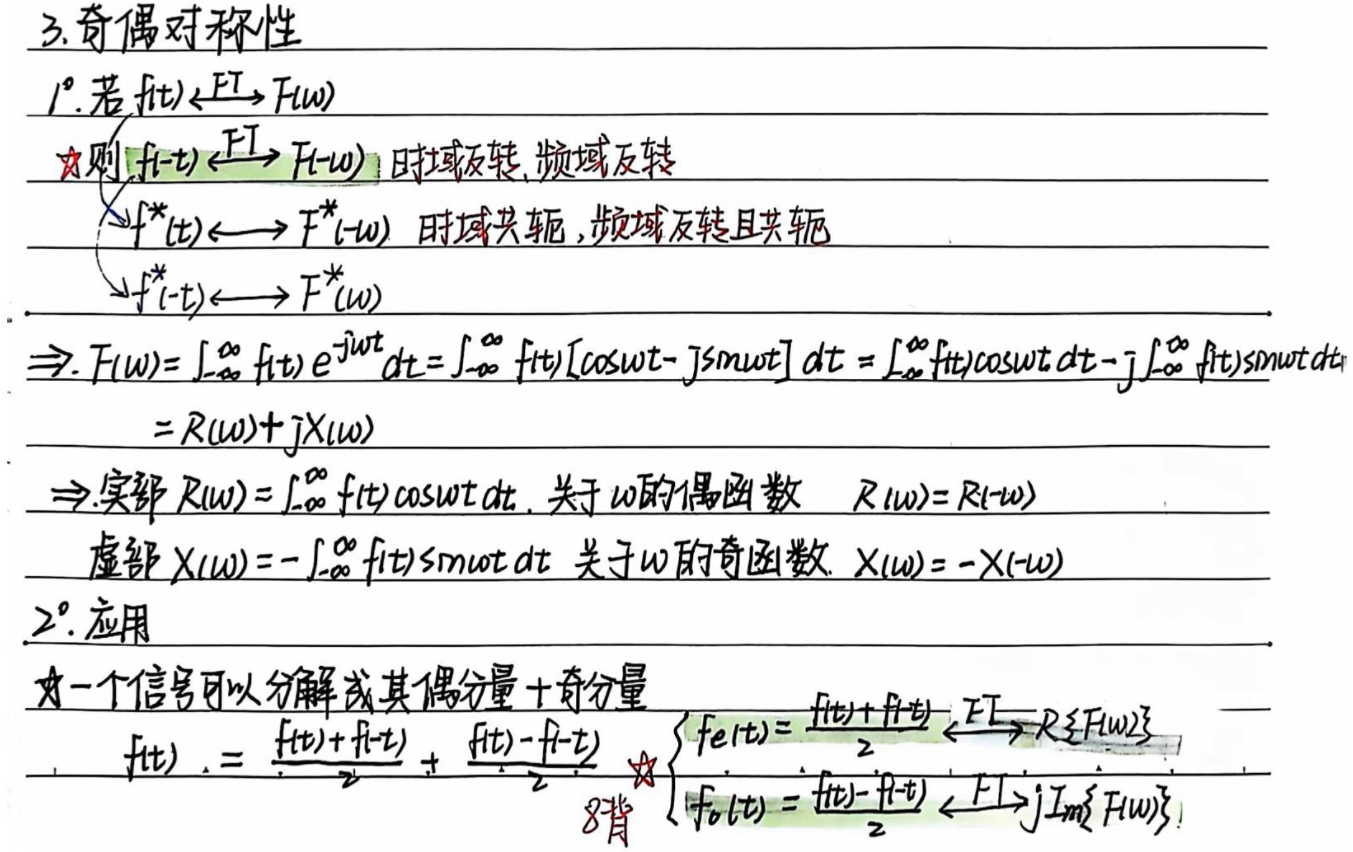 3. 奇偶对称性
1°. 若 f(t) ⟷FT F(ω)
☆则 f(-t) ⟷FT F(-ω) 时域反转,频域反转
f*(t) ⟷ F*(-ω) 时域共轭,频域反转且共轭
f*(-t) ⟷ F*(ω)
⇒. F(ω) = ∫_{-∞}^{∞} f(t) e^{-jωt} dt = ∫_{-∞}^{∞} f(t)[cosωt - jsinωt] dt = ∫_{-∞}^{∞} f(t)cosωt dt - j∫_{-∞}^{∞} f(t)sinωt dt
= R(ω) + jX(ω)
⇒. 实部 R(ω) = ∫_{-∞}^{∞} f(t) cosωt dt. 关于ω的偶函数 R(ω) = R(-ω)
虚部 X(ω) = -∫_{-∞}^{∞} f(t) sinωt dt 关于ω的奇函数. X(ω) = -X(-ω)
2°. 应用
☆一个信号可以分解成其偶分量+奇分量
f(t) = (f(t)+f(-t))/2 + (f(t)-f(-t))/2 ☆ { fe(t) = (f(t)+f(-t))/2 ⟷FT R{F(ω)}
8背 fo(t) = (f(t)-f(-t))/2 ⟷FT jIm{F(ω)}